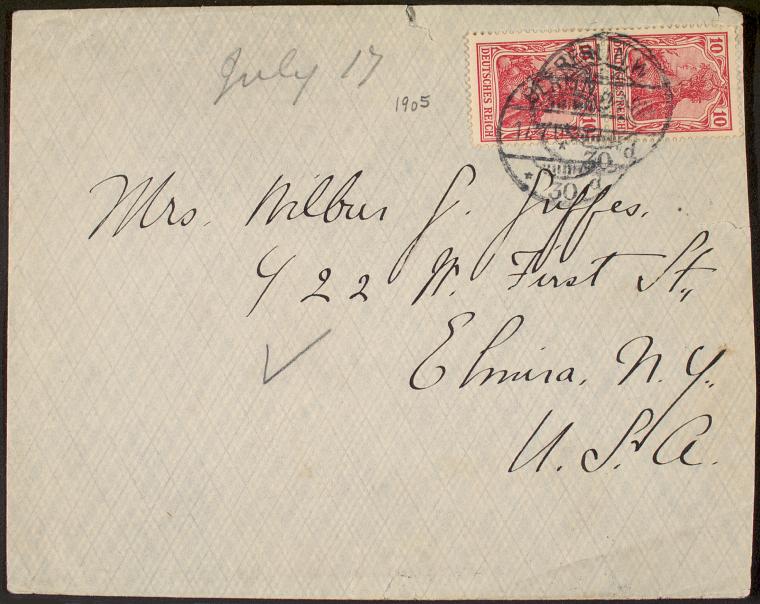 July 17
1905
DEUTSCHES REICH
10
10
10
BERLIN W
30 d
30 d
Mrs. Wilbur G. Griffes.
422 W. First St.,
Elmira, N.Y.,
U.S.A.